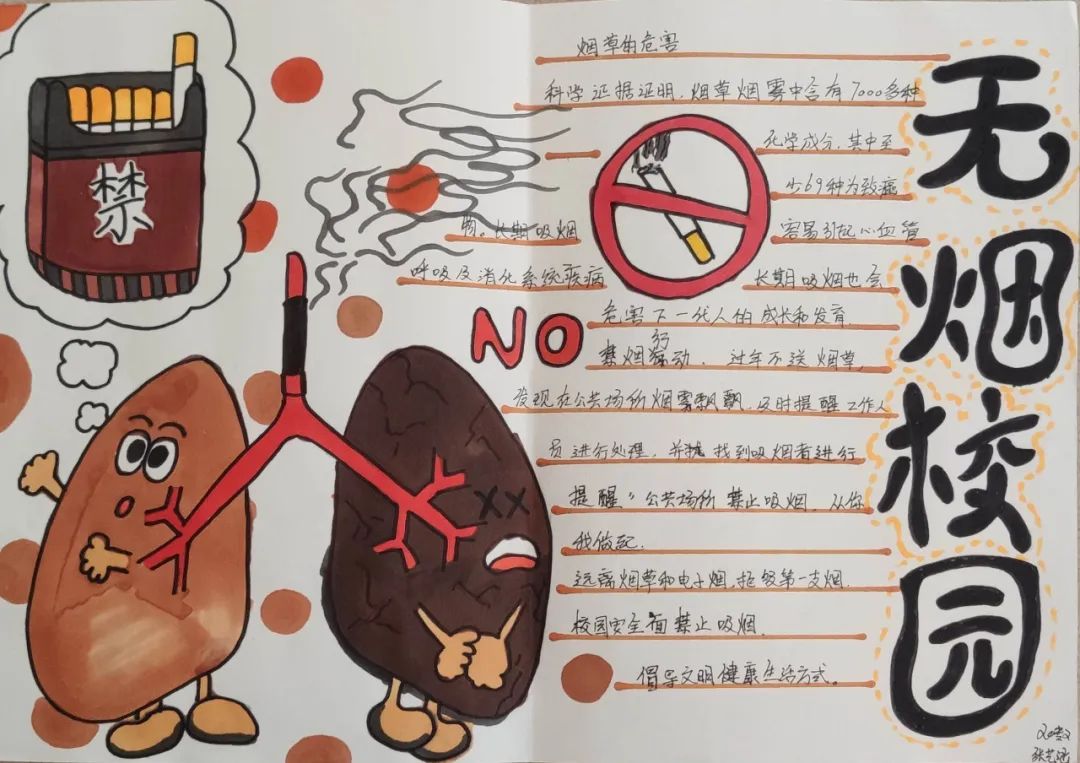 无烟校园
禁
NO
烟草的危害
科学证据证明,烟草烟雾中含有7000多种
化学成分,其中至
少69种为致癌
物。长期吸烟 容易引起心血管
呼吸及消化系统疾病 长期吸烟也会
危害下一代人的成长和发育,
禁烟行动, 过年不送烟草,
发现在公共场所烟雾飘飘,及时提醒工作人
员进行处理,并找到吸烟者进行
提醒"公共场所禁止吸烟,从你
我做起.
远离烟草和电子烟,拒绝第一支烟.
校园安全面禁止吸烟.
倡导文明健康生活方式。